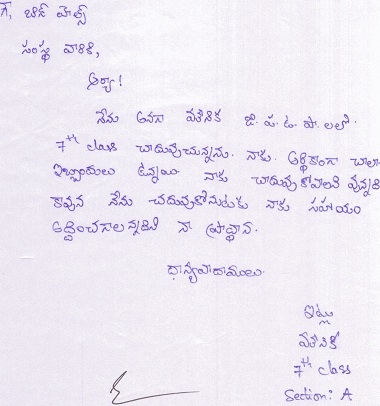 గౌ, చైల్డ్ హెల్ప్
సంస్థ వారికి,
ఆర్యా!
నేను అనగా మౌనిక జి. ప. ఉ. పా. లలో.
7th class చాదువుచున్నను. నాకు. ఆర్థికాంగా చాలా
ఇబ్బందులు ఉన్నయి. నాకు చాదువుకోవాలని వున్నది
కావున నేను చదువుకోనుటకు నాకు సహాయం
అర్దించగాలన్నదని నా ప్రార్థాన.
ధాన్యవాదాములు.
ఇట్లు
మౌనిక
7th class
Section: A